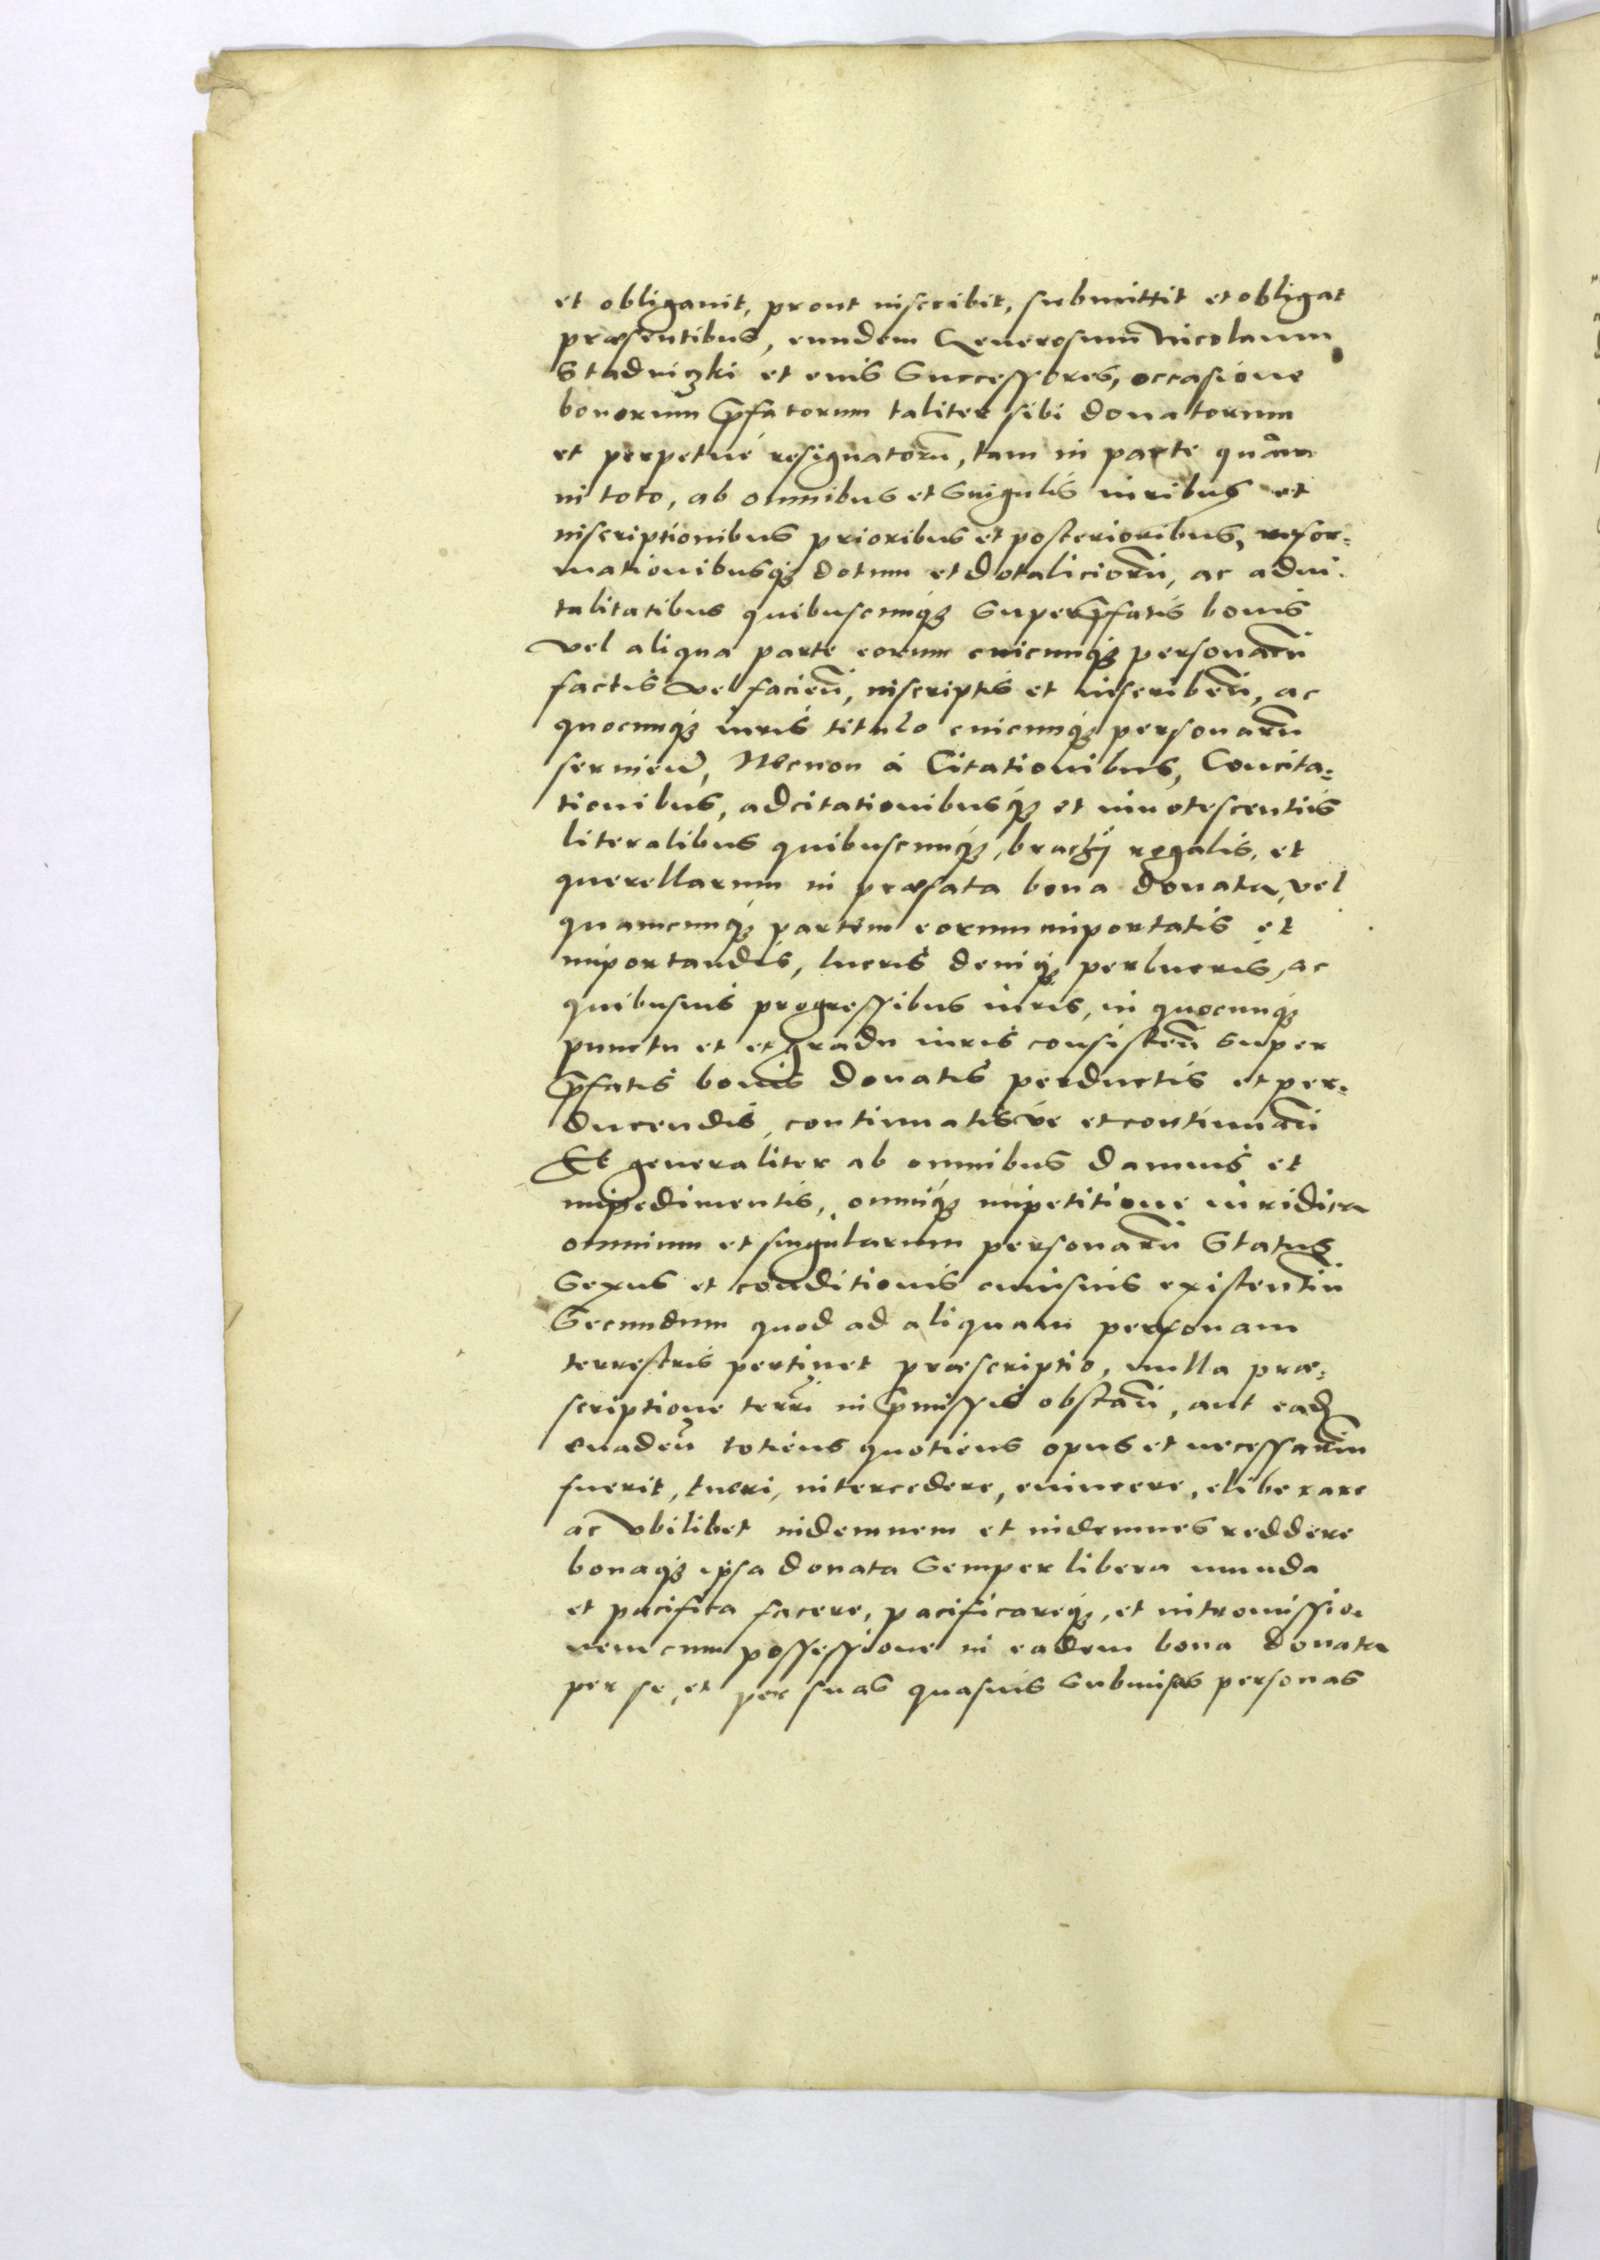 et obligavit, prout inscribit, submittit et obligat
præsentibus, eundem Generosum Nicolaum
Stadniczki et eius Successores, occasione
bonorum p̄fatorum taliter sibi donatorum
et perpetué resignatorū, tam in parte quàm
in toto, ab omnibus et Singulis iuribus et
inscriptionibus prioribus et posterioribus, refor=
mationibusq₃ dotum et dotaliciorū, ac advi=
talitatibus quibuscunq₃ Super p̄fatis bonis
vel aliqua parte eorum cuicunq₃ personarū
factis vel facien̄, inscriptis et inscriben̄, ac
quocunq₃ iuris titulo cuicunq₃ personarū
servien̄, Necnon à Citationibus, Concita=
tionibus, adcitationibusq₃ et innotescentiis
literalibus quibuscunq₃, brachij regalis, et
querellarum in præfata bona donata, vel
quamcunq₃ partem eorum importatis et
importandis, lucris deniq₃ perlucris, ac
quibusuis progressibus iuris, in quocunq₃
punctu et et gradu iuris consisten̄ Super
p̄fatis bonis donatis perductis et per=
ducendis, continuatisve et continuan̄
Et generaliter ab omnibus damnis et
impedimentis, omniq₃ impetitione iuridica
omnium et singularum personarū Status
Sexus et conditionis cuiusuis existentiū
Secundum quod ad aliquam personam
terrestris pertinet præscriptio, nulla præ=
scriptione terrī in p̄missis obstan̄, aut ead
evaden̄ totiens quotiens opus et necessariū
fuerit, tueri, intercedere, evincere, eliberare
ac vbilibet indemnem et indemnes reddere
bonaq₃ ipsa donata Semper libera munda
et pacifica facere, pacificareq₃, et intromissio=
nem cum possessione in eadem bona donata
per se, et per suas quasuis Submisās personas